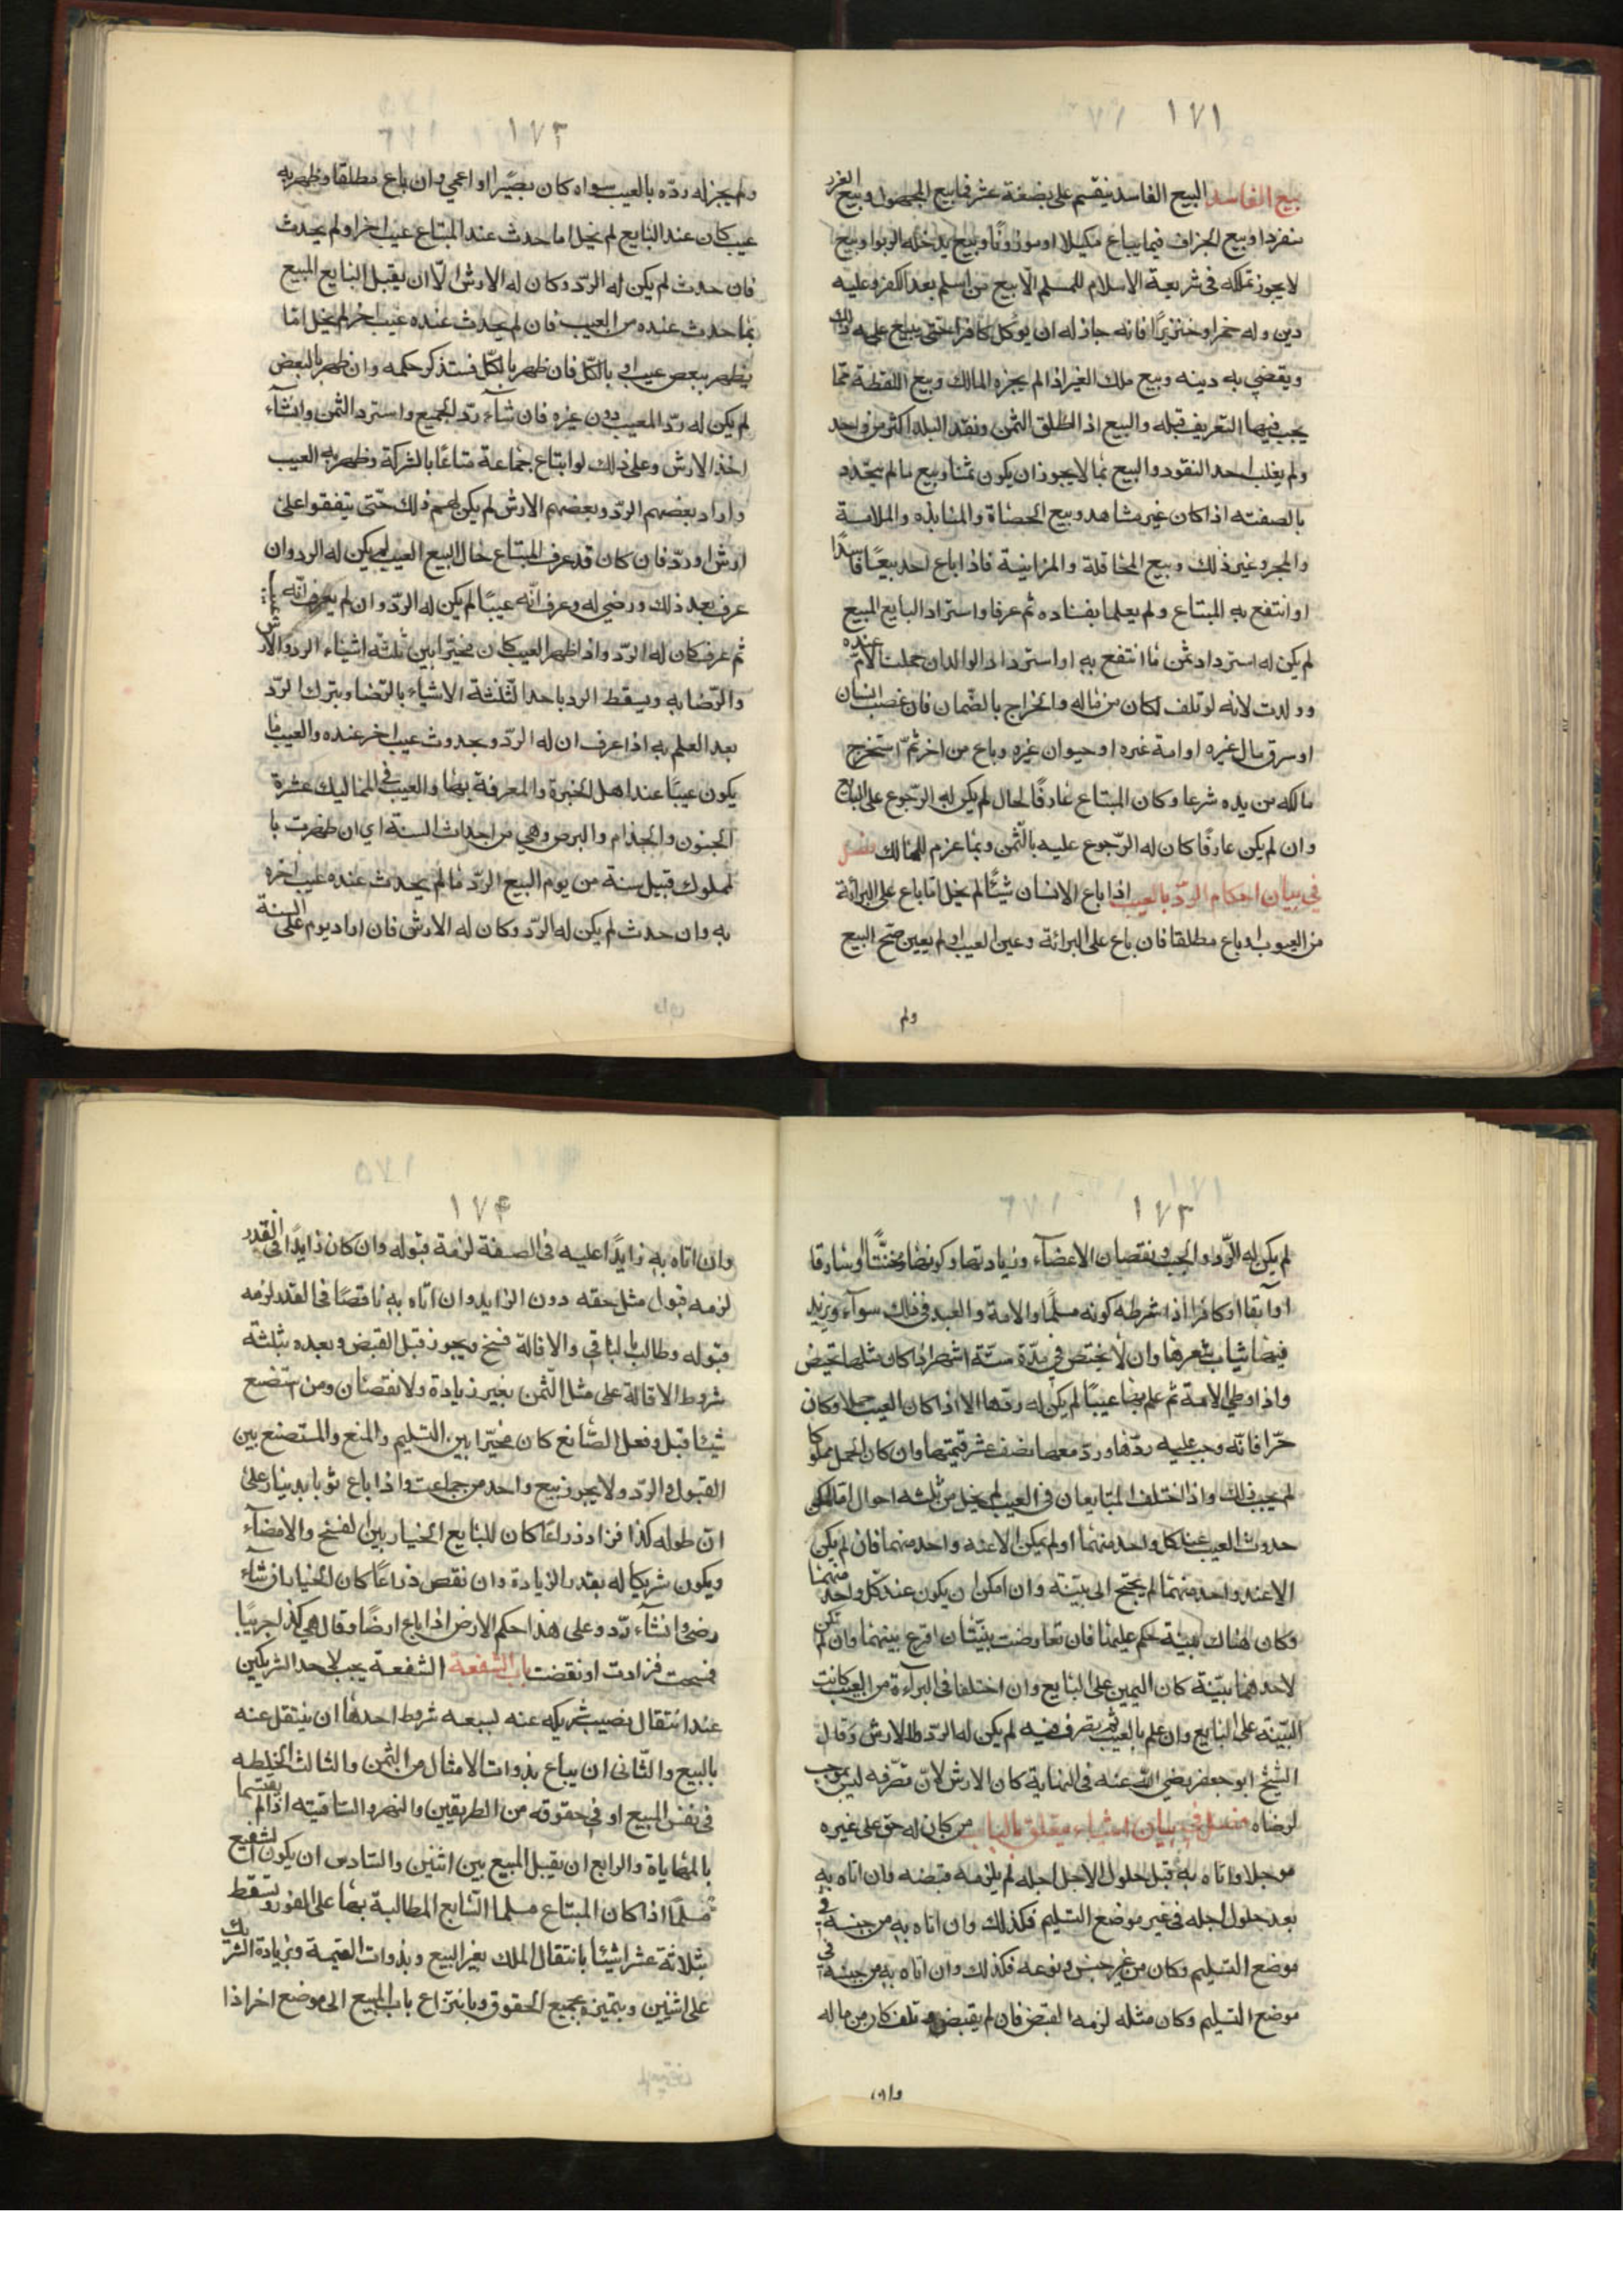 ١٧١
بيع الفاسد البيع الفاسد ينقسم على بضعة عشر قسما بيع المجهول وبيع الغرر
منفردا وبيع الجزاف فيما يباع مكيلا او موزونا وبيع يدخله الربوا وبيع
لا يجوز تملكه فى شريعة الاسلام للمسلم الا بيع من اسلم بعد الكفر وعليه
دين وله خمر او خنزيرا فانه جاز له ان يوكل كافرا حتى يبيع عليه ذلك
ويقضي به دينه وبيع ملك الغير اذا لم يجزه المالك وبيع اللقطة مما
يجب فيها التعريف قبله والبيع اذا اطلق الثمن ونقد البلد اكثر من واحد
ولم يغلب احد النقود والبيع بما لا يجوز ان يكون ثمنا وبيع ما لم يتحدد
بالصفته اذا كان غير مشاهد وبيع الحصاة والمنابذه والملامسة
والمجر وغير ذلك وبيع المحاقلة والمزابنة فاذا اباع احد بيعًا فاسدًا
او انتفع به المبتاع ولم يعلما بفساده ثم عرفا واسترد البايع المبيع
لم يكن له استرداد ثمن ما انتفع به او استرداد الوالد ان حملت الام عنده
وولدت لانه لو تلف لكان من ماله والخراج بالضمان فان غصب انسان
او سرق مال غيره او امة غيره او حيوان غيره وباع من اخر ثم استخرج
مالكه من يده شرعا وكان المبتاع عارفًا لحال لم يكن له الرجوع على البايع
وان لم يكن عارفًا كان له الرجوع عليه بالثمن وبما غرم للمالك فصل
في بيان احكام الرد بالعيب اذا باع الانسان شيئًا لم يخل اما باع على البرائة
من العيوب او باع مطلقا فان باع على البرائة وعين العيب او لم يعين صح البيع
ولم
١٧٢
ولم يجز له رده بالعيب سواه كان بصيرا او اعمي وان باع مطلقا وظهر به
عيب كان عند البايع لم يخل اما حدث عند المبتاع عيب اخر او لم يحدث
فان حدث لم يكن له الردّ وكان له الارش الّا ان يقبل البايع المبيع
بما حدث عنده من العيب فان لم يحدث عنده عيب اخر لم يخل امّا
يظهر ببعض عيب او بالكلّ فان ظهر بالكلّ فستذكر حكمه وان ظهر بالبعض
لم يكن له ردّ المعيب دون غيره فان شآء ردّ الجميع واسترد الثمن وانشآء
اخذ الارش وعلى ذلك لو ابتاع جماعة متاعًا بالشركة وظهر به العيب
واراد بعضهم الردّ وبعضهم الارش لم يكن لهم ذلك حتى يتفقوا على
ارش او ردّ فان كان قد عرف المبتاع حال البيع العيب لم يكن له الرد وان
عرف بعد ذلك ورضي له وعرف انه عيبًا لم يكن له الردّ وان لم يعرف انه
ثم عرف كان له الردّ واذا ظهر العيب كان مخيّرا بين ثلثه اشياء الرد والارش
والرّضا به ويسقط الرد باحد الثلثة الاشياء بالرّضا وبترك الردّ
بعد العلم به اذا عرف ان له الردّ وبحدوث عيب اخر عنده والعيب ما
يكون عيبًا عند اهل الخبرة والمعرفة بها والعيب فى المماليك عشرة
الجنون والجذام والبرص وهي من احداث السنة اي ان ظهرت با
لمملوك قبيل سنة من يوم البيع الردّ ما لم يحدث عنده عيب اخر
به وان حدث لم يكن له الردّ وكان له الارش فان اراد يوم على السنة
١٧٣
لم يكن له الردّ والجب ونقصان الاعضآء وزيادتها وكونها مخنثًا او سارقا
او آبقا او كافرا اذا شرطه كونه مسلمًا والامة والعبد فى ذلك سوآء ويزيد
واذا وطي الامة ثم علم بها عيبًا لم يكن له ردها الا اذا كان العيب حملا وكان
حرّا فانّه وجب عليه ردّها وردّ معها نصف عشر قيمتها وان كان الحمل مملوكا
لم يجب ذلك واذا اختلف المتبايعان فى العيب لم يخل من ثلثه احوال امّا امكن
حدوث العيب عند كل واحد منهما او لم يمكن الا عند واحد منهما فان لم يكن
الا عند واحد منهما لم يحتج الى بيّنة وان امكن ان يكون عند كل واحد منهما
وكان هناك بيّنة حكم عليها فان تعارضت بيّنتان اقرع بينهما وان لم تكن
لاحدهما بيّنة كان اليمين على البايع وان اختلفا فى البرآءة من العيب كانت
البيّنة على البايع وان علم بالعيب ثم تصرف فيه لم يكن له الردّ والارش وقال
الشيخ ابو جعفر رضي الله عنه فى النهاية كان الارش لانّ تصرّفه ليس بموجب
لرضاه فصل فى بيان اشياء يتعلق بالباب من كان له حق على غيره
موجلا واتاه به قبل حلول الاجل اجله لم يلزمه قبضه وان اتاه به
بعد حلول اجله فى غير موضع التسليم فكذلك وان اتاه به من جنسه فى
موضع التسليم وكان من غير جنس ونوعه فكذلك وان اتاه به من جنسه فى
موضع التسليم وكان مثله لزمه القبض فان لم يقبضه وتلف كان من ماله
وان
١٧٤
وان اتاه به زايدًا عليه فى الصفة لزمة قبوله وان كان زايدًا فى القدر
لزمه قبول مثل حقه دون الزايد وان اتاه به ناقصًا فى القدر لزمه
قبوله وطالب بالباقي والاقالة فسخ ويجوز قبل القبض وبعده بثلثة
شروط الاقالة على مثل الثمن بغير زيادة ولا نقصان ومن استصنع
شيئا قبل وفعل الصّانع كان مخيّرا بين التسليم والمنع والمستصنع بين
القبول والردّ ولا يجوز بيع واحد من جماعت واذا باع ثوبا بدينار على
انّ طوله كذا فزاد ذراعًا كان للبايع الخيار بين الفسخ والامضآء
ويكون شريكا له بقدر الزيادة وان نقص ذراعًا كان الخيار ان شآء
رضي وانشآء ردّ وعلى هذا حكم الارض اذا باع ارضًا وقال هي كذا جريبًا
فمسحت فزادت او نقضت باب الشفعة الشفعة يجب لاحد الشريكين
عند انتقال نصيب شريكه عنه لبيعه شروط احدها ان ينتقل عنه
بالبيع والثّانى ان يباع بذوات الامثال من الثمن والثالث الخلطه
فى نفس المبيع او فى حقوقه من الطريقين والنهر والساقيته اذا لم يقتسما
بالمهاياة والرابع ان يقبل المبيع بين اثنين والسّادس ان يكون الشفيع
مسلمًا اذا كان المبتاع مسلما السّابع المطالبة بها على الفور وتسقط
بثلاثة عشر اشيئا بانتقال الملك بغير البيع وبذوات القيمة وبزيادة الشريك
على اثنين وبتميزه بجميع الحقوق وبانتزاع باب المبيع الى موضع اخر اذا